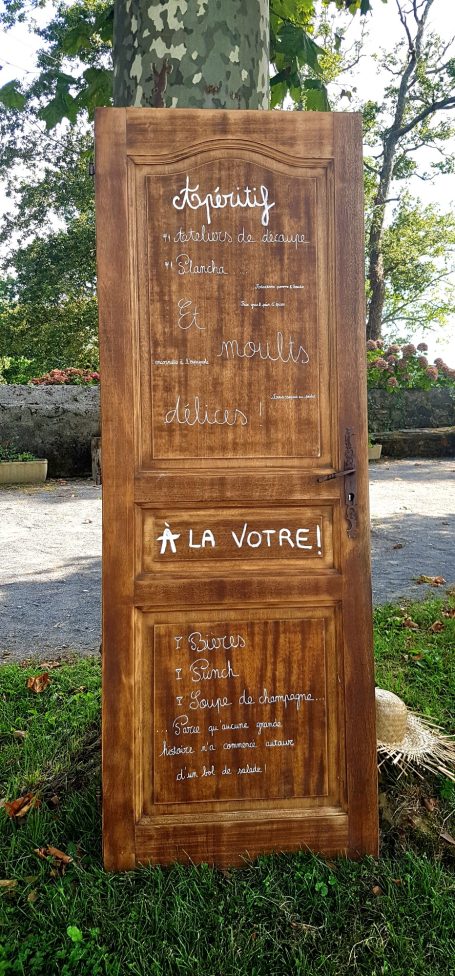 Apéritif
Ateliers de découpe
Plancha
Et
moults
délices !
À LA VOTRE!
Bières
Punch
Soupe de champagne...
... Parce qu'aucune grande
histoire n'a commencé autour
d'un bol de salade!